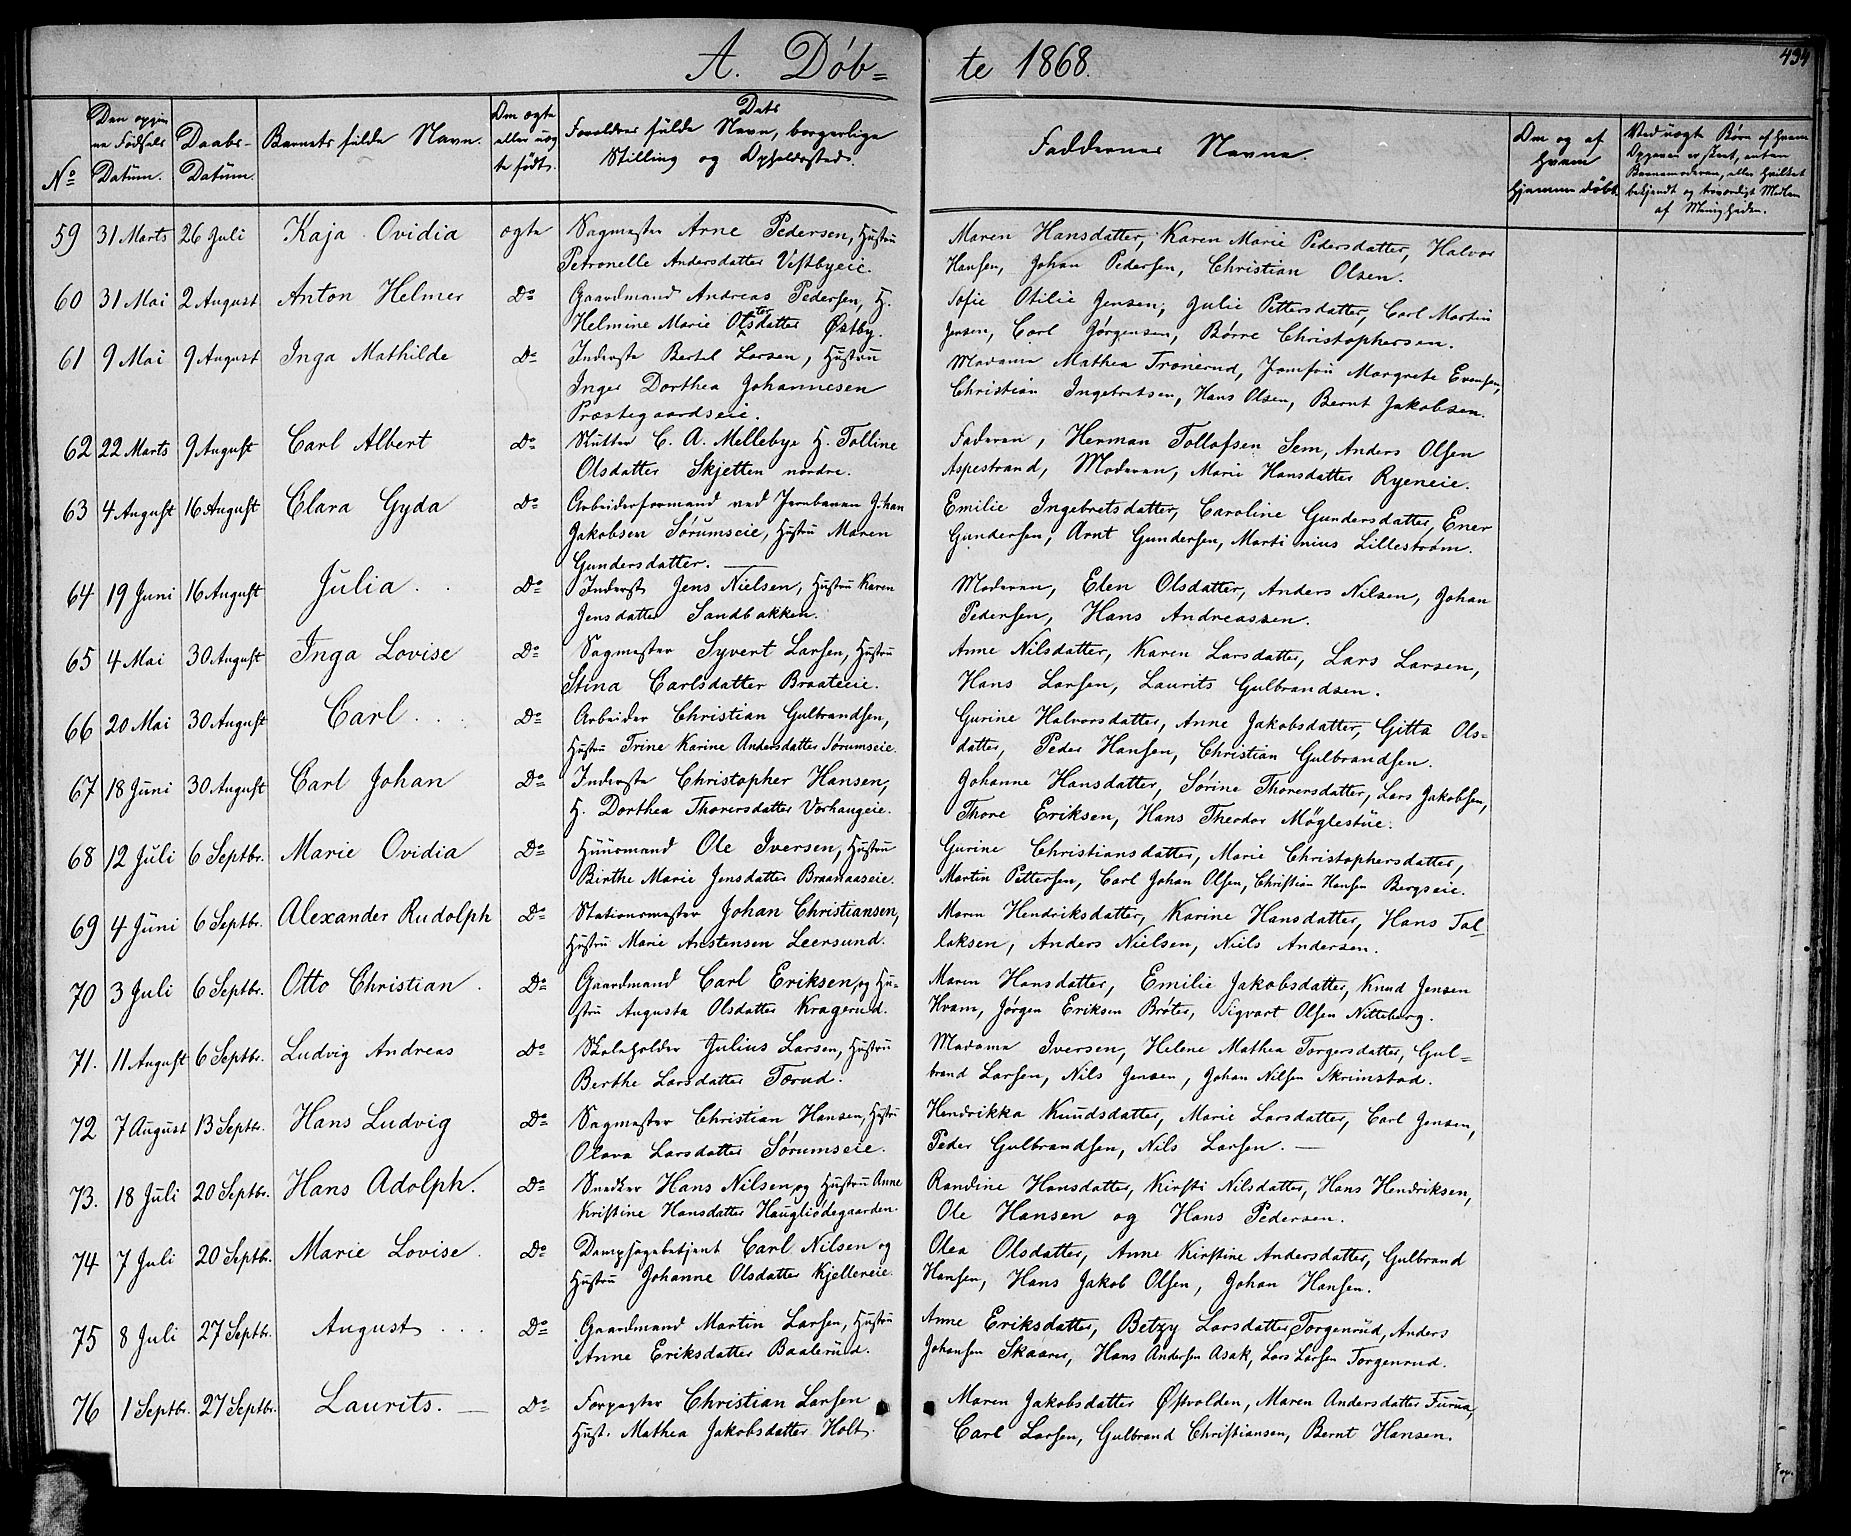 A. Døb= te 1868.
434
No
Den opgivne Fødsels Datum.
Daabs-Datum.
Barnets fulde Navn.
Om ægte eller uægte født.
Dets Forældres fulde Navn, borgerlige Stilling og Opholdssted.
Faddernes Navne.
Om og af Hvem hjemmedøbt
Ved uægte Børn af Hvem Opgaven er skeet, enten Barnemoderen, eller hvilket bekjendt og troværdigt Medlem af Menigheden.
59 31 Marts 26 Juli Kaja Ovidia ægte Sagmester Arne Pedersen, Hustru Maren Hansdatter, Karen Marie Pedersdatter, Halvor
Petronelle Andersdatter Vestbyeie. Hansen, Johan Pedersen, Christian Olsen.
60 31 Mai 2 August Anton Helmer Do Gaardmand Andreas Pedersen, H. Sofie Otilie Jensen, Julie Pettersdatter, Carl Martin
Helmine Marie Olsdatter Østby. Jensen, Carl Jørgensen, Børre Christophersen.
61 9 Mai 9 August Inga Mathilde Do Inderste Bertel Larsen, Hustru Madame Mathea Tronerud, Jomfru Margrete Evensen,
Inger Dorthea Johannesen Christian Ingebretsen, Hans Olsen, Bernt Jakobsen.
Præstegaardseie.
62 22 Marts 9 August Carl Albert Do C. A. Mellebye H. Tolline Faderen, Herman Tollofsen Sem, Anders Olsen
Olsdatter Skjetten nordre. Aspestrand, Moderen, Marie Hansdatter Ryeneie.
63 4 August 16 August Clara Gyda Do Arbeiderformand ved Jernbanen Johan Emilie Ingebretsdatter, Caroline Gundersdatter, Ener
Jakobsen Sørumseie, Hustru Maren Gundersen, Arnt Gundersen, Martinius Lillestrøm.
Gundersdatter.
64 19 Juni 16 August Julia Do Inderst Jens Nielsen, Hustru Karen Moderen, Elen Olsdatter, Anders Nilsen, Johan
Jensdatter Sandbakken. Pedersen, Hans Andreassen.
65 4 Mai 30 August Inga Lovise Do Sagmester Syvert Larsen, Hustru Anne Nilsdatter, Karen Larsdatter, Lars Larsen,
Stina Carlsdatter Braateeie. Hans Larsen, Laurits Gulbrandsen.
66 20 Mai 30 August Carl Do Arbeider Christian Gulbrandsen, Gurine Halvorsdatter, Anne Jakobsdatter, Gitta Ols-
Hustru Trine Karine Andersdatter Sørumseie. datter, Peder Hansen, Christian Gulbrandsen.
67 18 Juni 30 August Carl Johan Do Inderste Christopher Hansen, Johanne Hansdatter, Sørine Thorersdatter, Lars Jakobsen,
H. Dorthea Thorersdatter Vorhaugeie. Thore Eriksen, Hans Theodor Møglestue.
68 12 Juli 6 Septbr. Marie Ovidia Do Huusmand Ole Iversen, Hustru Gurine Christiansdatter, Marie Christophersdatter,
Birthe Marie Jensdatter Braanaaseie. Martin Pettersen, Carl Johan Olsen, Christian Hansen Bergseie.
69 4 Juni 6 Septbr. Alexander Rudolph Do Stationsmester Johan Christiansen, Maren Hendriksdatter, Karine Hansdatter, Hans Tol-
Hustru Marie Anstensen Leersund. laksen, Anders Nielsen, Niels Andersen.
70 3 Juli 6 Septbr. Otto Christian Do Gaardmand Carl Eriksen, og Hu- Maren Hansdatter, Emilie Jakobsdatter, Knud Jensen
stru Augusta Olsdatter Kragerud. Hvam, Jørgen Eriksen Brøter, Sigvart Olsen Nitteberg.
71. 11 August 6 Septbr. Ludvig Andreas Do Skoleholder Julius Larsen, Hustru Madame Iversen, Helene Mathea Torgersdatter, Gul-
Berthe Larsdatter Torud. brand Larsen, Nils Jensen, Johan Nilsen Skrimstad.
72 7 August 13 Septbr. Hans Ludvig Do Sagmester Christian Hansen, Hustru Hendrikka Knudsdatter, Marie Larsdatter, Carl Jensen,
Olava Larsdatter Sørumseie. Peder Gulbrandsen, Nils Larsen.
73. 18 Juli 20 Septbr. Hans Adolph. Do Snedker Hans Nilsen og Hustru Anne Randine Hansdatter, Kirsti Nilsdatter, Hans Hendriksen,
Kristine Hansdatter Haugliødegaarden Ole Hansen og Hans Pedersen.
74 7 Juli 20 Septbr. Marie Lovise. Do Dampsagbetjent Carl Nilsen og Olea Olsdatter, Anne Kirstine Andersdatter, Gulbrand
Hustru Johanne Olsdatter Kjellereie. Hansen, Hans Jakob Olsen, Johan Hansen.
75 8 Juli 27 Septbr. August Do Gaardmand Martin Larsen, Hustru Anne Eriksdatter, Betzy Larsdatter Torgenrud, Anders
Anne Eriksdatter Baalerud. Johansen Skaarer, Hans Andersen Asak, Lars Larsen Torgenrud.
76 1 Septbr. 27 Septbr. Laurits. Do Forpagter Christian Larsen Maren Jakobsdatter Østvolden, Maren Andersdatter Furua,
Hust. Mathea Jakobsdatter Holt. Carl Larsen, Gulbrand Christiansen, Bernt Hansen.